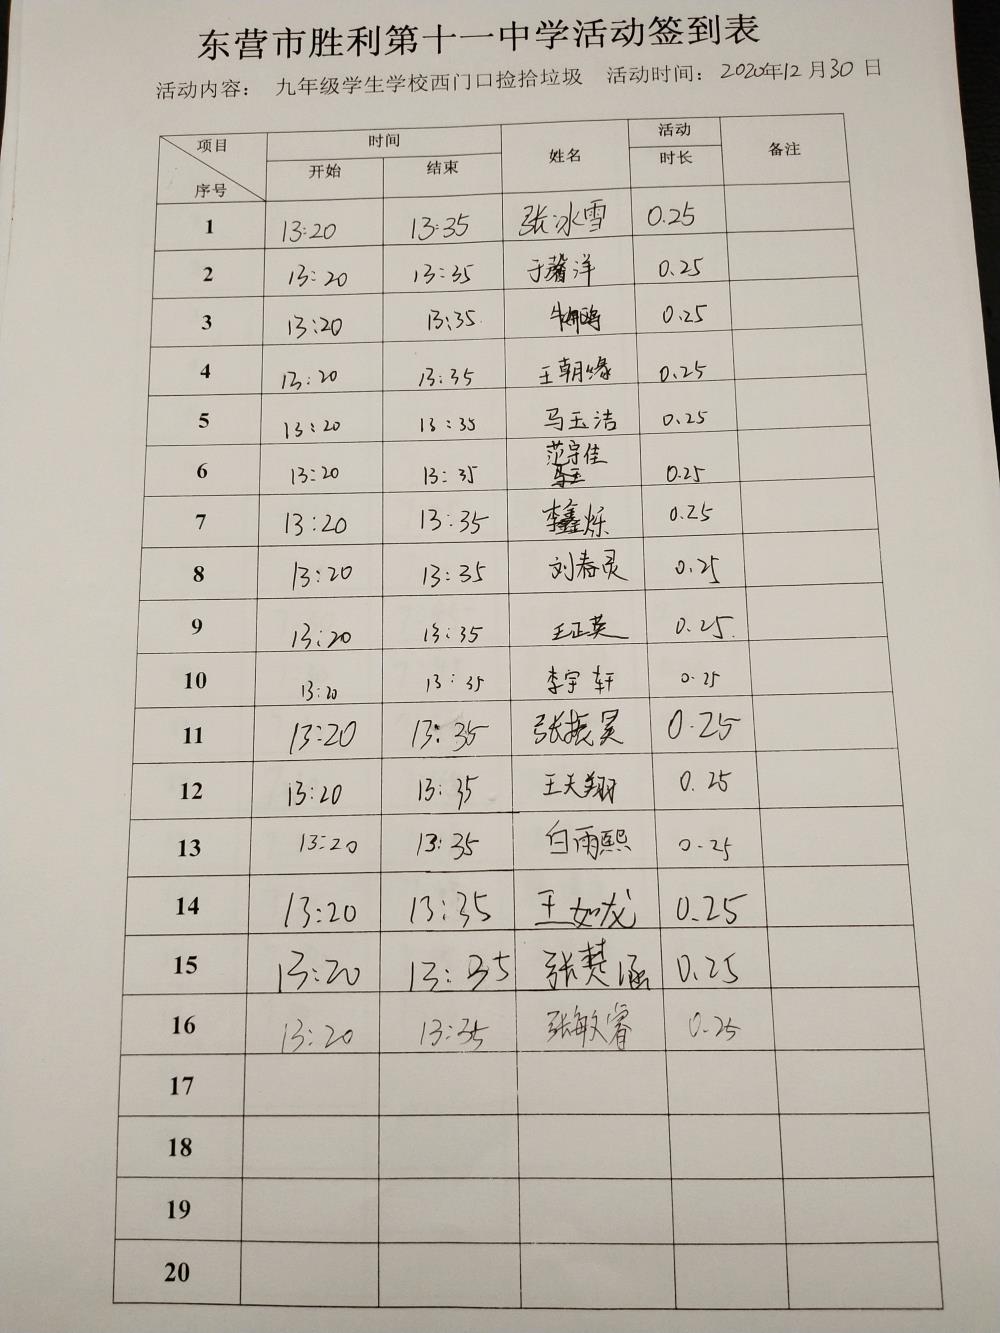 东营市胜利第十一中学活动签到表
活动内容： 九年级学生学校西门口捡拾垃圾 活动时间：2020年12月30日
项目 时间 姓名 活动 备注
序号 开始 结束 时长
1 13:20 13:35 张冰雪 0.25
2 13:20 13:35 于馨洋 0.25
3 13:20 13:35 0.25
4 13:20 13:35 王朝缘 0.25
5 13:20 13:35 马玉洁 0.25
6 13:20 13:35 范宇佳 0.25
7 13:20 13:35 李鑫烁 0.25
8 13:20 13:35 刘春灵 0.25
9 13:20 13:35 王正英 0.25
10 13:20 13:35 李宇轩 0.25
11 13:20 13:35 张振昊 0.25
12 13:20 13:35 王天翔 0.25
13 13:20 13:35 白雨熙 0.25
14 13:20 13:35 王如龙 0.25
15 13:20 13:35 张楚涵 0.25
16 13:20 13:35 张敏睿 0.25
17
18
19
20